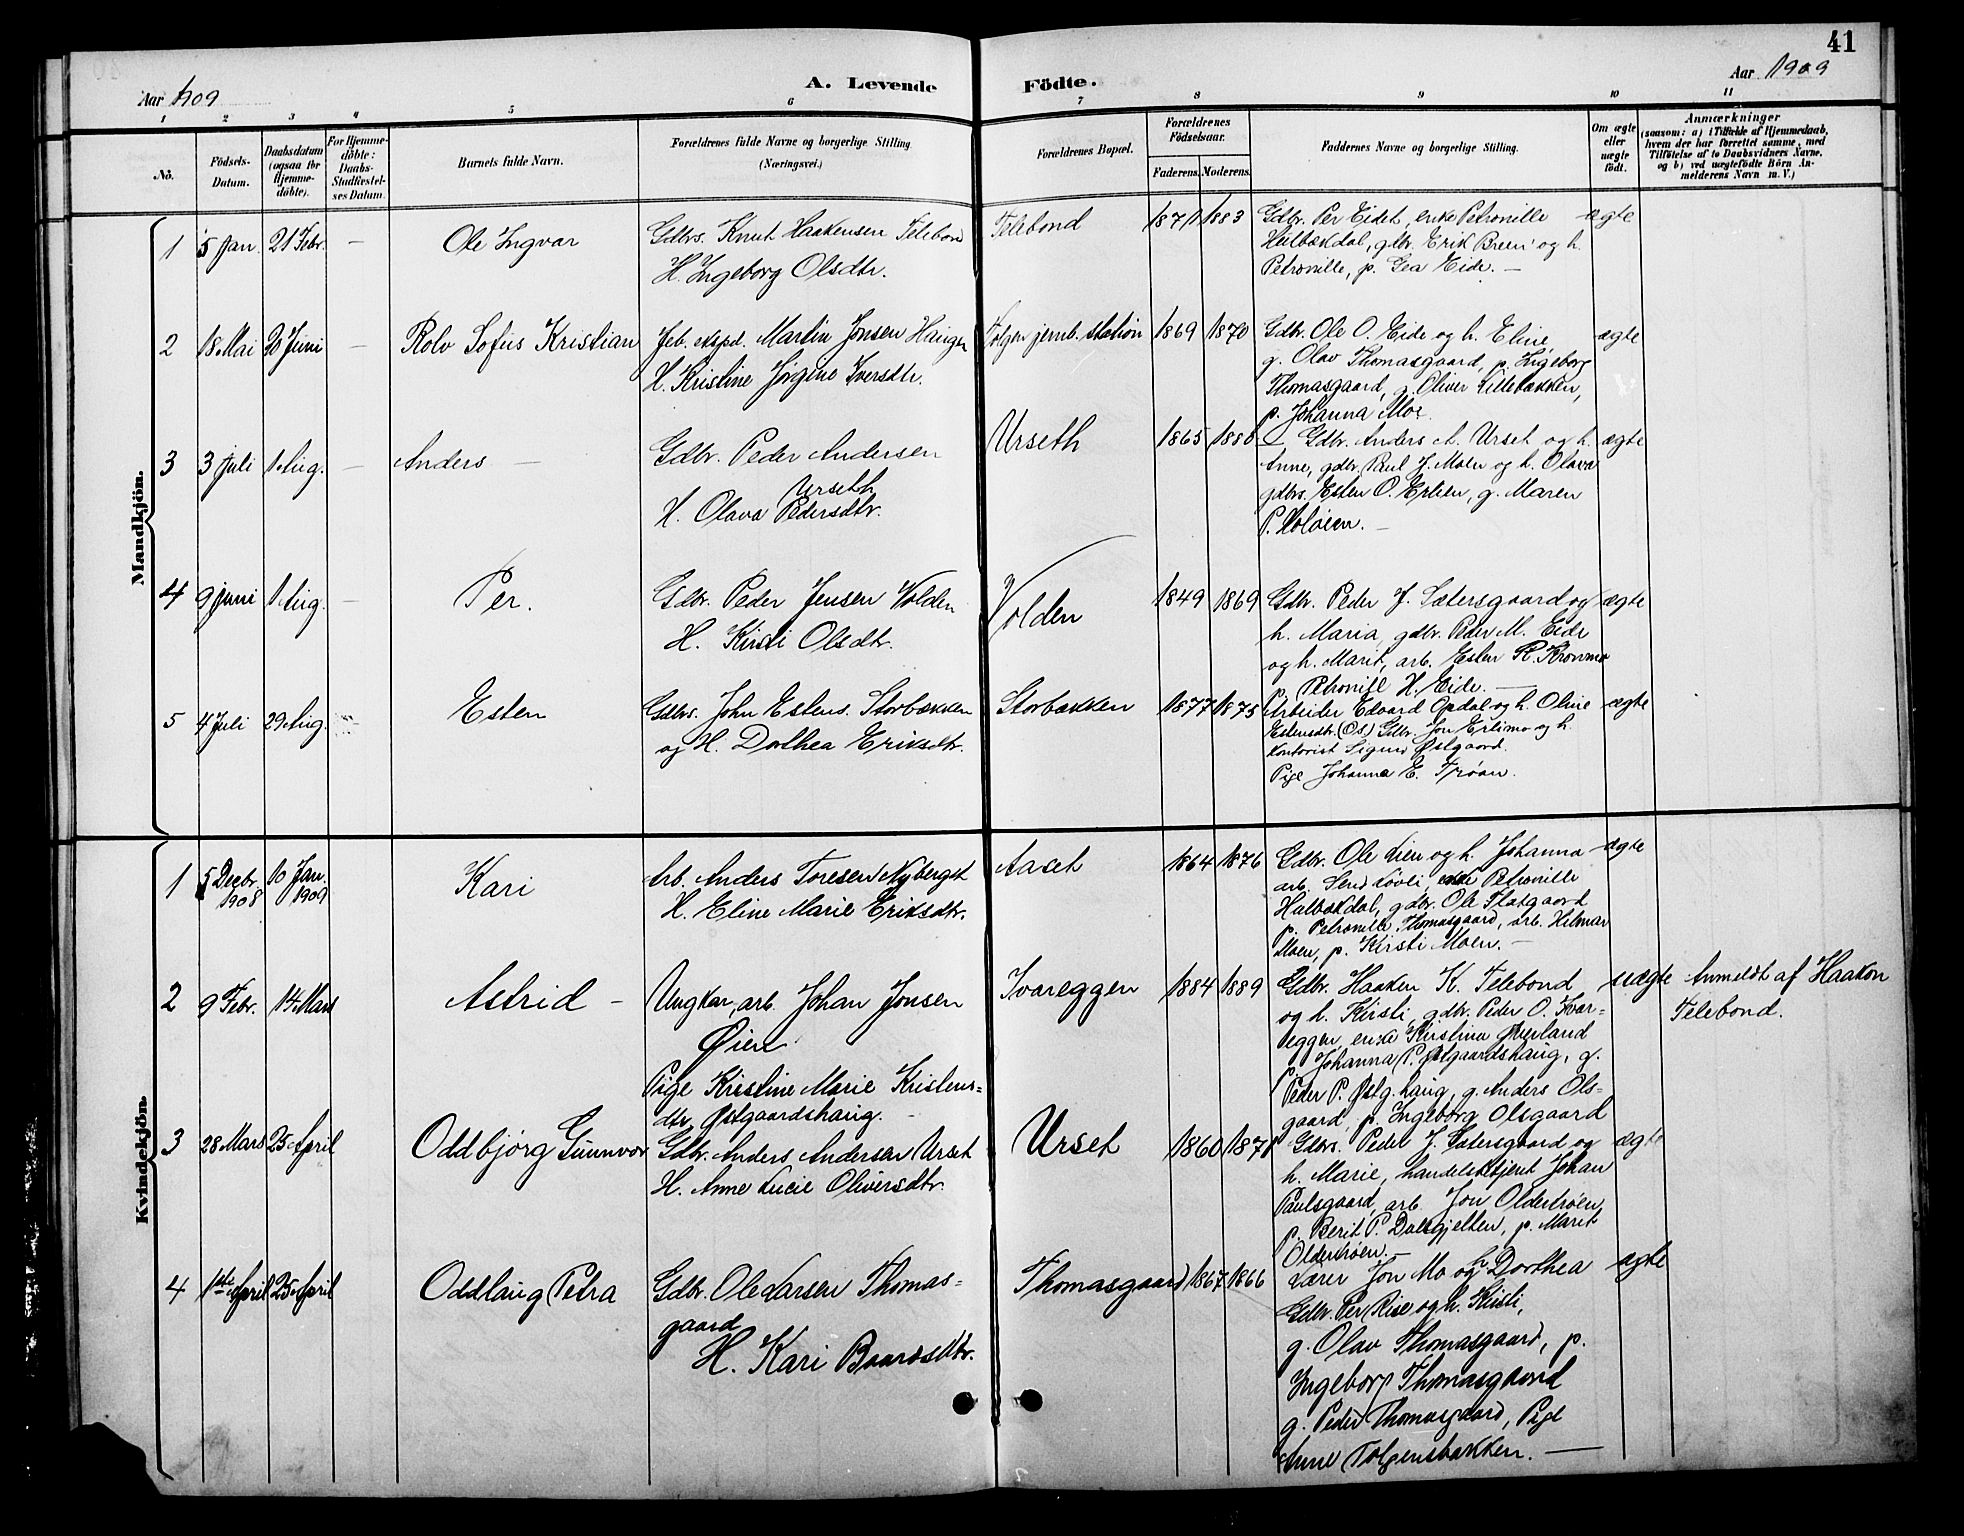 41
Aar 1909
A. Levende
Födte.
Aar 1909
1 2 3 4 5 6 7 8 9 10 11
No.
Födsels-Datum.
Daabsdatum (ogsaa for Hjemmedöbte).
For Hjemmedöbte: Daabs-Stadfæstelses Datum.
Barnets fulde Navn.
Forældrenes fulde Navne og borgerlige Stilling (Næringsvei.)
Forældrenes Bopæl.
Forældrenes Födselsaar.
Faderens. Moderens.
Faddernes Navne og borgerlige Stilling.
Om ægte eller uægte födt.
Anmærkninger
(saasom: a) i Tilfælde af Hjemmedaab,
hvem der har forrettet samme, med
Tilföielse af to Daabsvidners Navne,
og b) ved uægtefödte Börn An-
melderens Navn m. V.)
Mandkjön.
1 5 Jan. 21 Febr. — Ole Ingvar
Gdbrs. Knut Haakensen Telebond
H. Ingeborg Olsdtr.
Telebond 1871 1883
Gdbr. Per Eidet, enke Petronille
gdbr. Erik Breen og h.
Petronille, p. Gea Eide. —
ægte
2 18 Mai 20 Juni — Rolv Sofus Kristian
Jeb. exspd. Martin Jonsen Haugen
H. Kristine Jørgine Iversdtr.
Tolgen jernb. station 1869 1870
Gdbr. Ole O. Eide og h. Eline,
g. Olav Thomasgaard, p. Ingeborg
Thomasgaard, g. Oliver Lillebækken,
p. Johanna Moe.
ægte
3 3 Juli 1 Aug. — Anders —
Gdbr. Peder Andersen
Urseth
H. Olava Pedersdtr.
Urseth 1865 1886
Gdbr. Anders A. Urset og h.
Anne, gdbr. Paul J. Moen og h. Olava
gdbrs. Esten O. Erlien, g. Maren
P. Holøien. —
ægte
4 9 Juni 1 Aug. — Per.
Gdbr. Peder Jensen Volden
H. Kirsti Olsdtr.
Volden 1849 1869
Gdbr. Peder J. Sætersgaard og
h. Maria, gdbr. Peder M. Eide
og h. Marit, arb. Esten R. Kronmo
p. Petronill H. Eide. —
ægte
5 4 Juli 29 Aug. Esten
Gdbrs. John Estens. Storbækken
og H. Dorthea Eriksdtr.
Storbækken 1877 1875
Arbeider Edvard Opdal og h. Oline
Estensdtr. (Os) Gdbr. Jon Erlimo og h.
Kontorist Sigurd Østgaard.
Pige Johanna E. Trøan.
ægte
Kvindekjön.
1 5 Decbr. 1908 10 Jan. 1909 Kari
Arb. Anders Toresen Nyberget
H. Eline Marie Eriksdtr.
Aaset 1864 1876
Gdbr. Ole Lien og h. Johanna
arb. Send Løvli, enke Petronille
Holbækdal, gdbr. Ole Flatgaard
p. Petronille Thomasgaard, arb. Hilmar
Moen, p. Kirsti Moen. —
ægte
2 9 Febr. 14 Mars Astrid —
Ungkar, arb. Johan Jonsen
Øien
Pige Kristine Marie Kristens-
dtr. Østgaardshaug.
Kvareggen 1884 1889
Gdbr. Haaken K. Telebond
og h. Kirsti, gdbr. Peder O. Kvar-
eggen, enke Kirstine Øverland
p. Johanna P. Østgaardshaug, g.
Peder P. Østg.haug, g. Anders Ols-
gaard, p. Ingeborg Olsgaard
uægte
Anmeldt af Haakon
Telebond.
3 28 Mars 25 April Oddbjørg Gunnvor
Gdbr. Anders Andersen Urset
H. Anne Lucie Oliversdtr.
Urset 1860 1871
Gdbrs. Peder J. Sætersgaard og
h. Marie, handelsbetjent Johan
Paulsgaard, arb. Jon Oldertrøen,
p. Berit P. Dalsgjelten, p. Marit
Oldertrøen. —
ægte
4 1ste April 25 April Oddlaug Petra
Gdbr. Ole Larsen Thomas-
gaard
H. Kari Baardsdtr.
Thomasgaard 1867 1866
Lærer Jon Mo og h. Dorthea
Gdbr. Per Rise og h. Kirsti,
g. Olav Thomasgaard, p.
Ingeborg Thomasgaard
g. Peder Thomasgaard, Pige
Anne Tolgensbakken. —
ægte